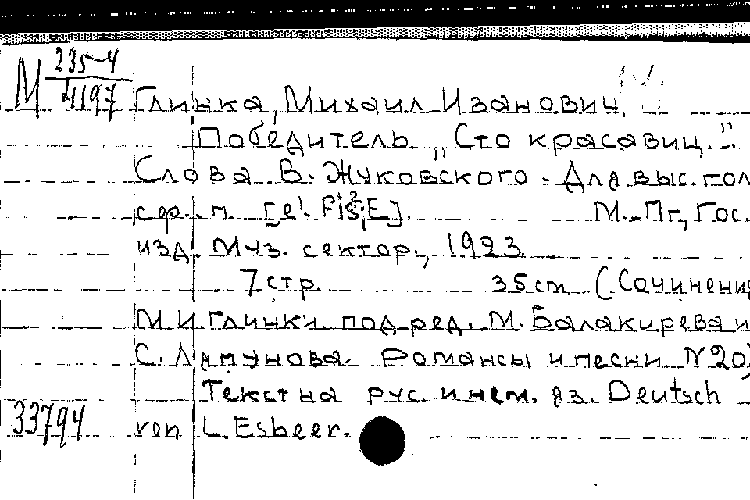 М 235-4
4197
Глинка, Михаил Иванович.
Победитель „Сто красавиц.."
Слова В. Жуковского. Для выс. гол.
с ф. п. M.-Пг, Гос.
изд. Муз. сектор, 1923
7 стр. 35 cm (Сочинения
М И Глинки под ред. М. Балакирева и
С. Ляпунова. Романсы и песни N 20)
Текст на рус. и нем. яз. Deutsch
33794 von L. Esbeer.